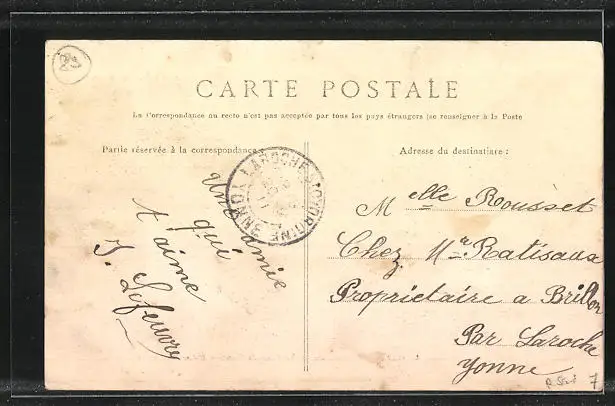 CARTE POSTALE
La Correspondance au recto n'est pas acceptée par tous les pays étrangers (se renseigner à la Poste
Partie réservée à la correspondance.
Adresse du destinataire :
LAROCHE-ST-CYDROINE
YONNE
Une amie
qui
t'aime
J. Lefeuvre
Melle Rousset
Chez Mr Ratisaux
Proprietaire a Brillon
Par Laroche
Yonne
7